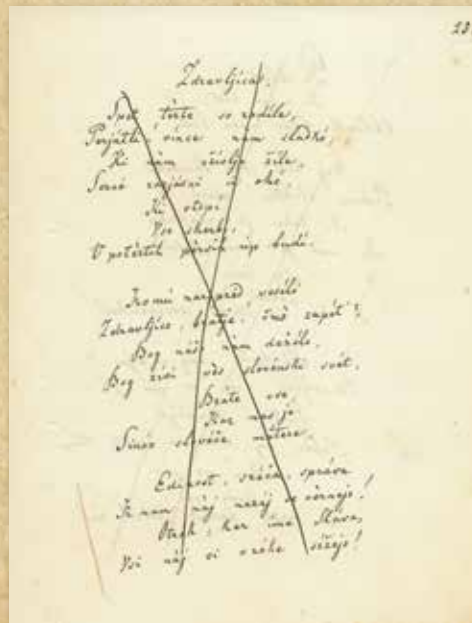 23
Zdravljica.
Spet tèrte so rodile,
Prijatli, vince nam sladkó,
Ki nam oživlja žile,
Sercé razjásni in okó,
Ki otopi
Vse skerbi,
V potèrtih pèrsih up budi.
Komú nar pred veselo
Zdravljico, bratje, čmò zapét'?
Bog našo nam deželo,
Bog živi ves slovénski svét,
Bráte vse
Kar nas je
Sinóv slovéče mátere.
Edinost, sréča, správa
K nam naj nazaj se vernejo!
Otrók, kar ima Sláva,
Vsi naj si v róke séžejo!